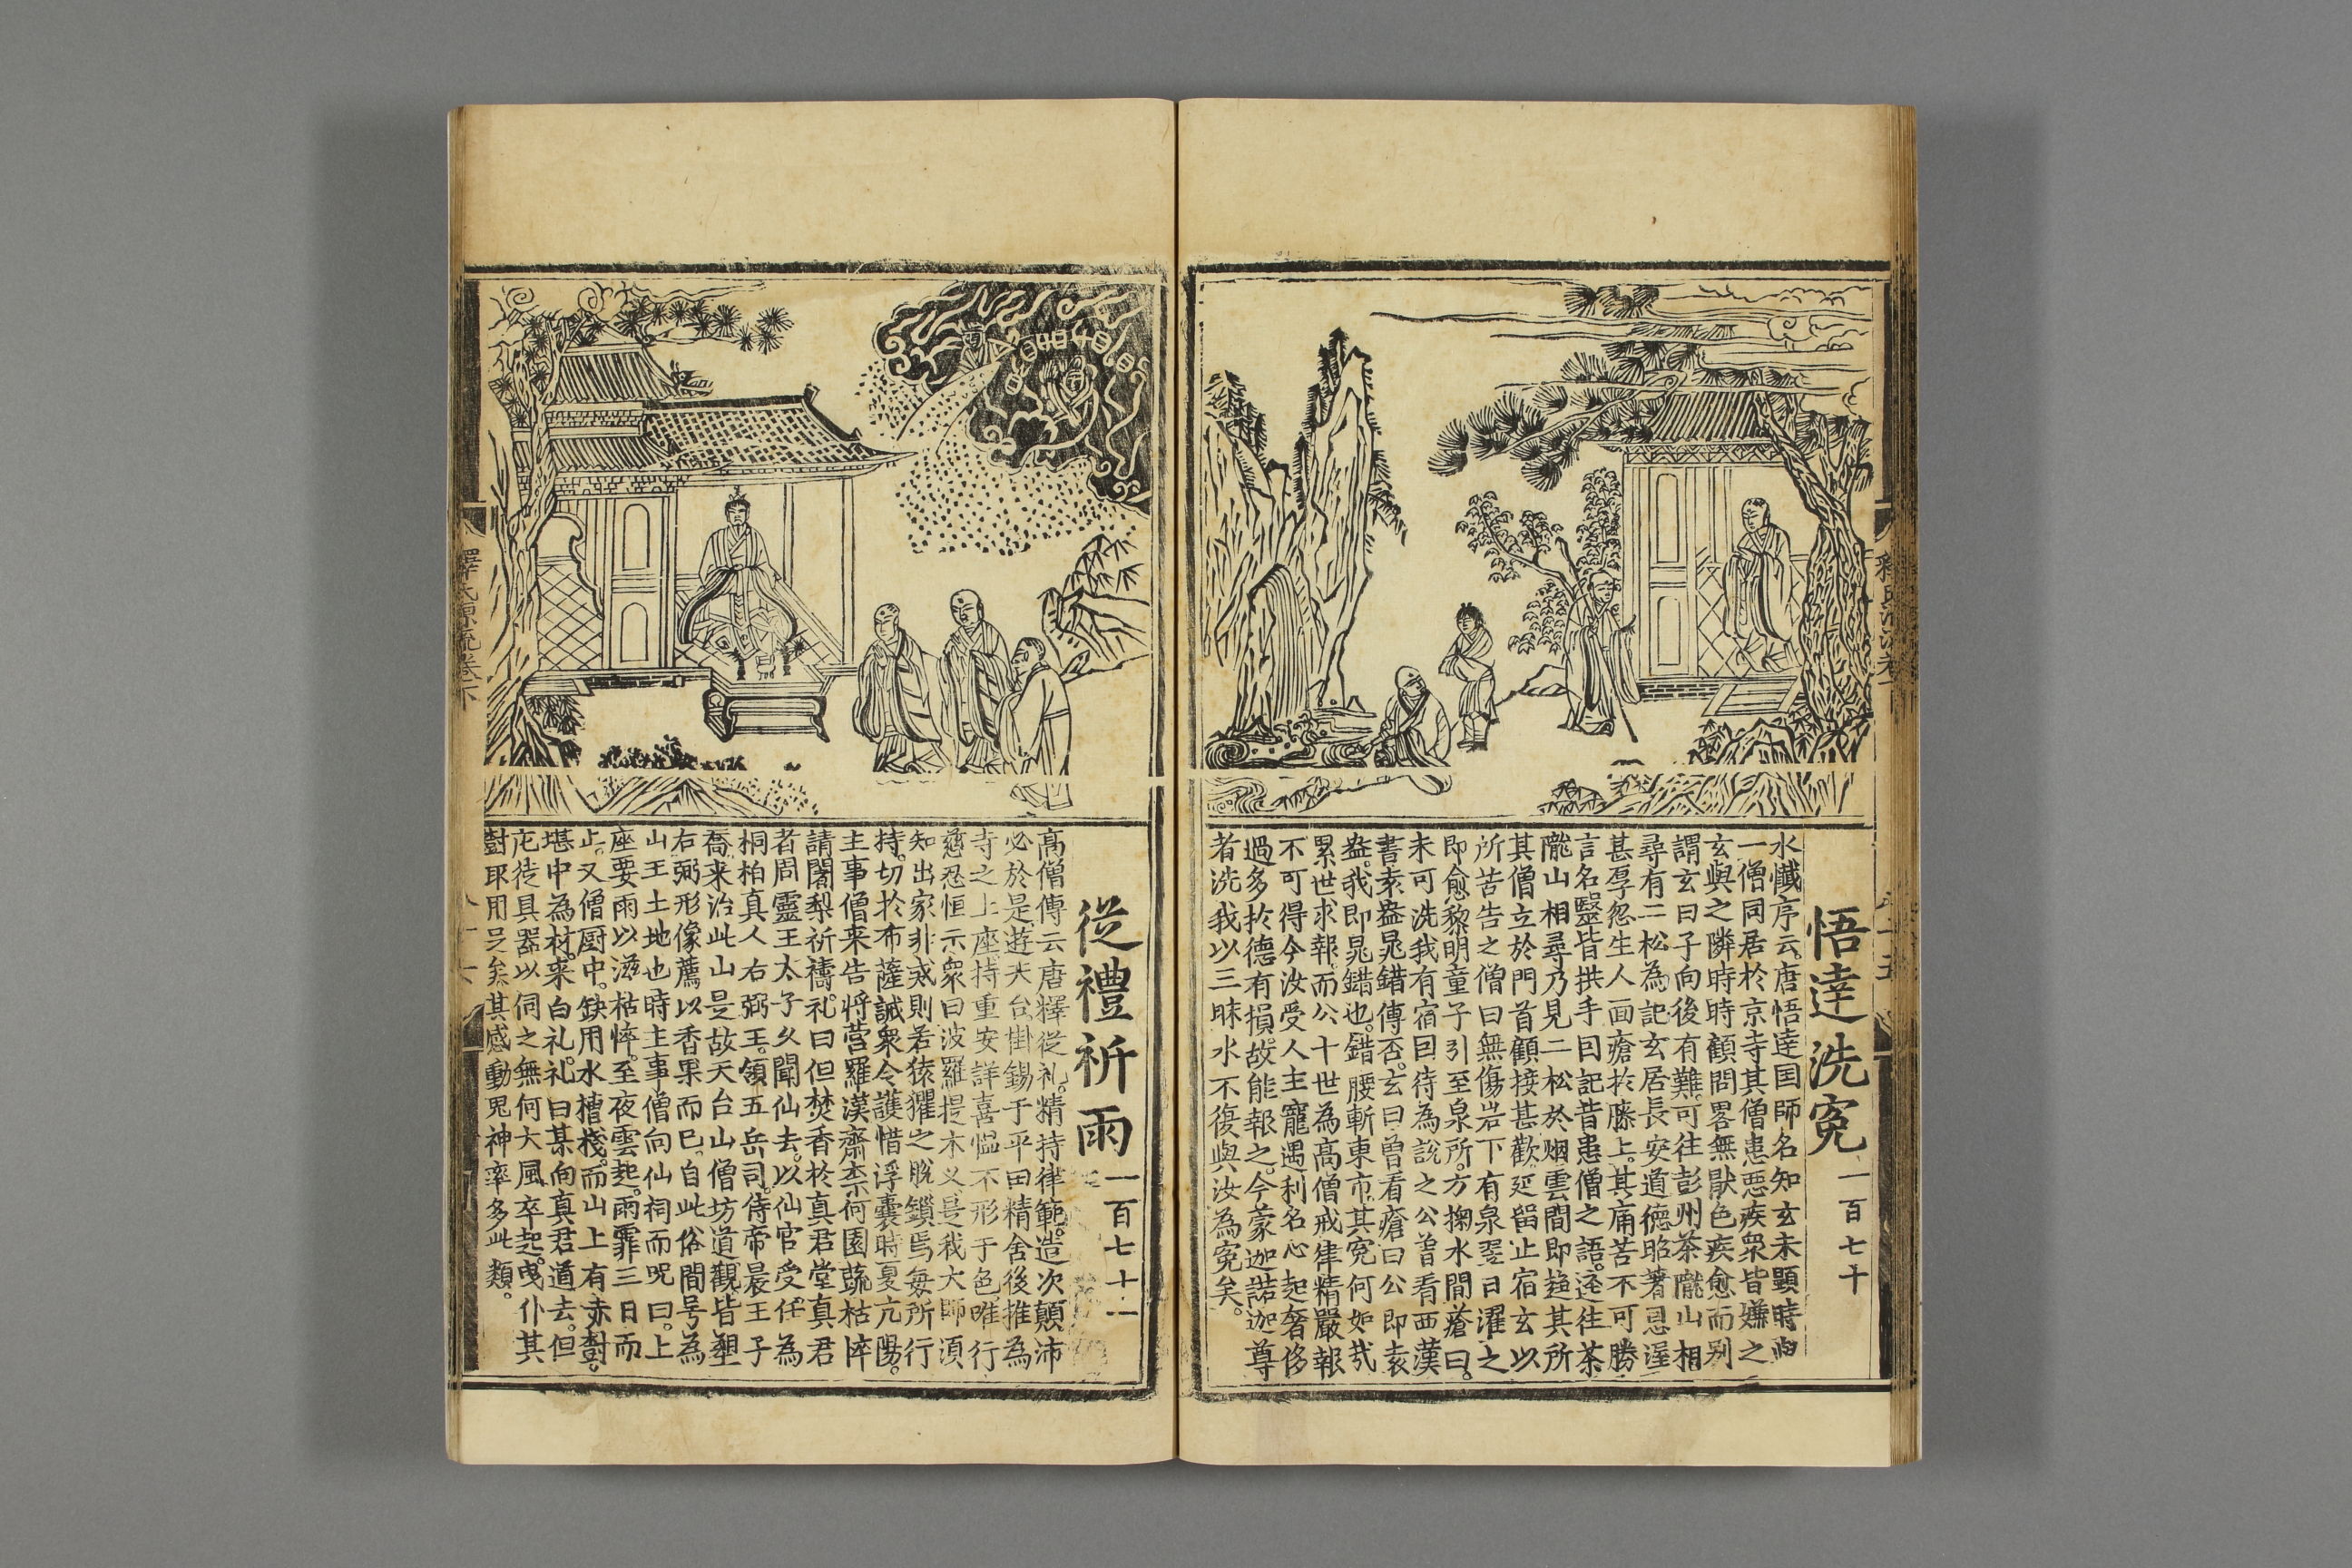 悟達洗寃 一百七十
水懺序云。唐悟達囯師名知玄未顯時
一僧同居於京寺其僧患悪疾衆皆嫌之
玄與之隣時時顧問畧無猒色疾愈而别
謂玄曰子向後有難。可往彭州茶隴山相
尋有二松為記玄居長安道德昭著
甚厚忽生人面瘡於膝上。其痛苦不可勝
言名醫皆拱手囙記昔患僧之語。逕往茶
隴山相尋乃見二松於烟雲間即趍其所
其僧立於門首顧接甚歡延留止宿玄以
所苦告之僧曰無傷岩下有泉翌日濯之
即愈黎明童子引至泉所。方掬水間瘡曰。
未可洗我有宿囙待為說之公曽看西漢
書袁盎晁錯傳否。玄曰曽看瘡曰公即袁
盎。我即晁錯也。錯腰斬東市。其寃何如㢤
累世求報。而公十世為高僧戒律精嚴報
不可得今汝受人主寵遇利名心起奢侈
過多於德有損。故能報之。今蒙迦諾迦尊
者洗我以三昧水不復與汝為寃矣。
從禮祈雨 一百七十一
高僧傳云唐釋從礼。精持律範。造次顛沛
必於是遊天台掛錫于平田精舍後推為
寺之上座。持重安詳喜愠不形于色。唯行
慈忍恒示衆曰波羅提木义是我大師須
知出家非戒則若猿玃之脫鎻焉每所行
持。切於布薩誡衆令護惜浮囊時夏亢陽。
主事僧来告將營羅漢齋柰何園蔬枯悴
請闍梨祈禱。礼曰但焚香於真君堂真君
者周靈王太子久聞仙去。以仙官受任為
桐柏真人右弼王。領五岳司。侍帝晨王子
喬来治此山是故天台山僧坊道觀皆塑
右弼形像薦以香果而已。自此俗間号為
山王土地也時主事僧向仙祠而呪曰。上
座要雨以滋枯悴。至夜雲起。雨霏三日而
止。又僧厨中。缺用水槽棧。而山上有赤𣗳。
堪中為材。来白礼。礼曰某向真君道去。但
庀徒具器以伺之無何大風卒起。曵仆其
𣗳取用足矣其感動鬼神率多此類。
釋氏源流卷下